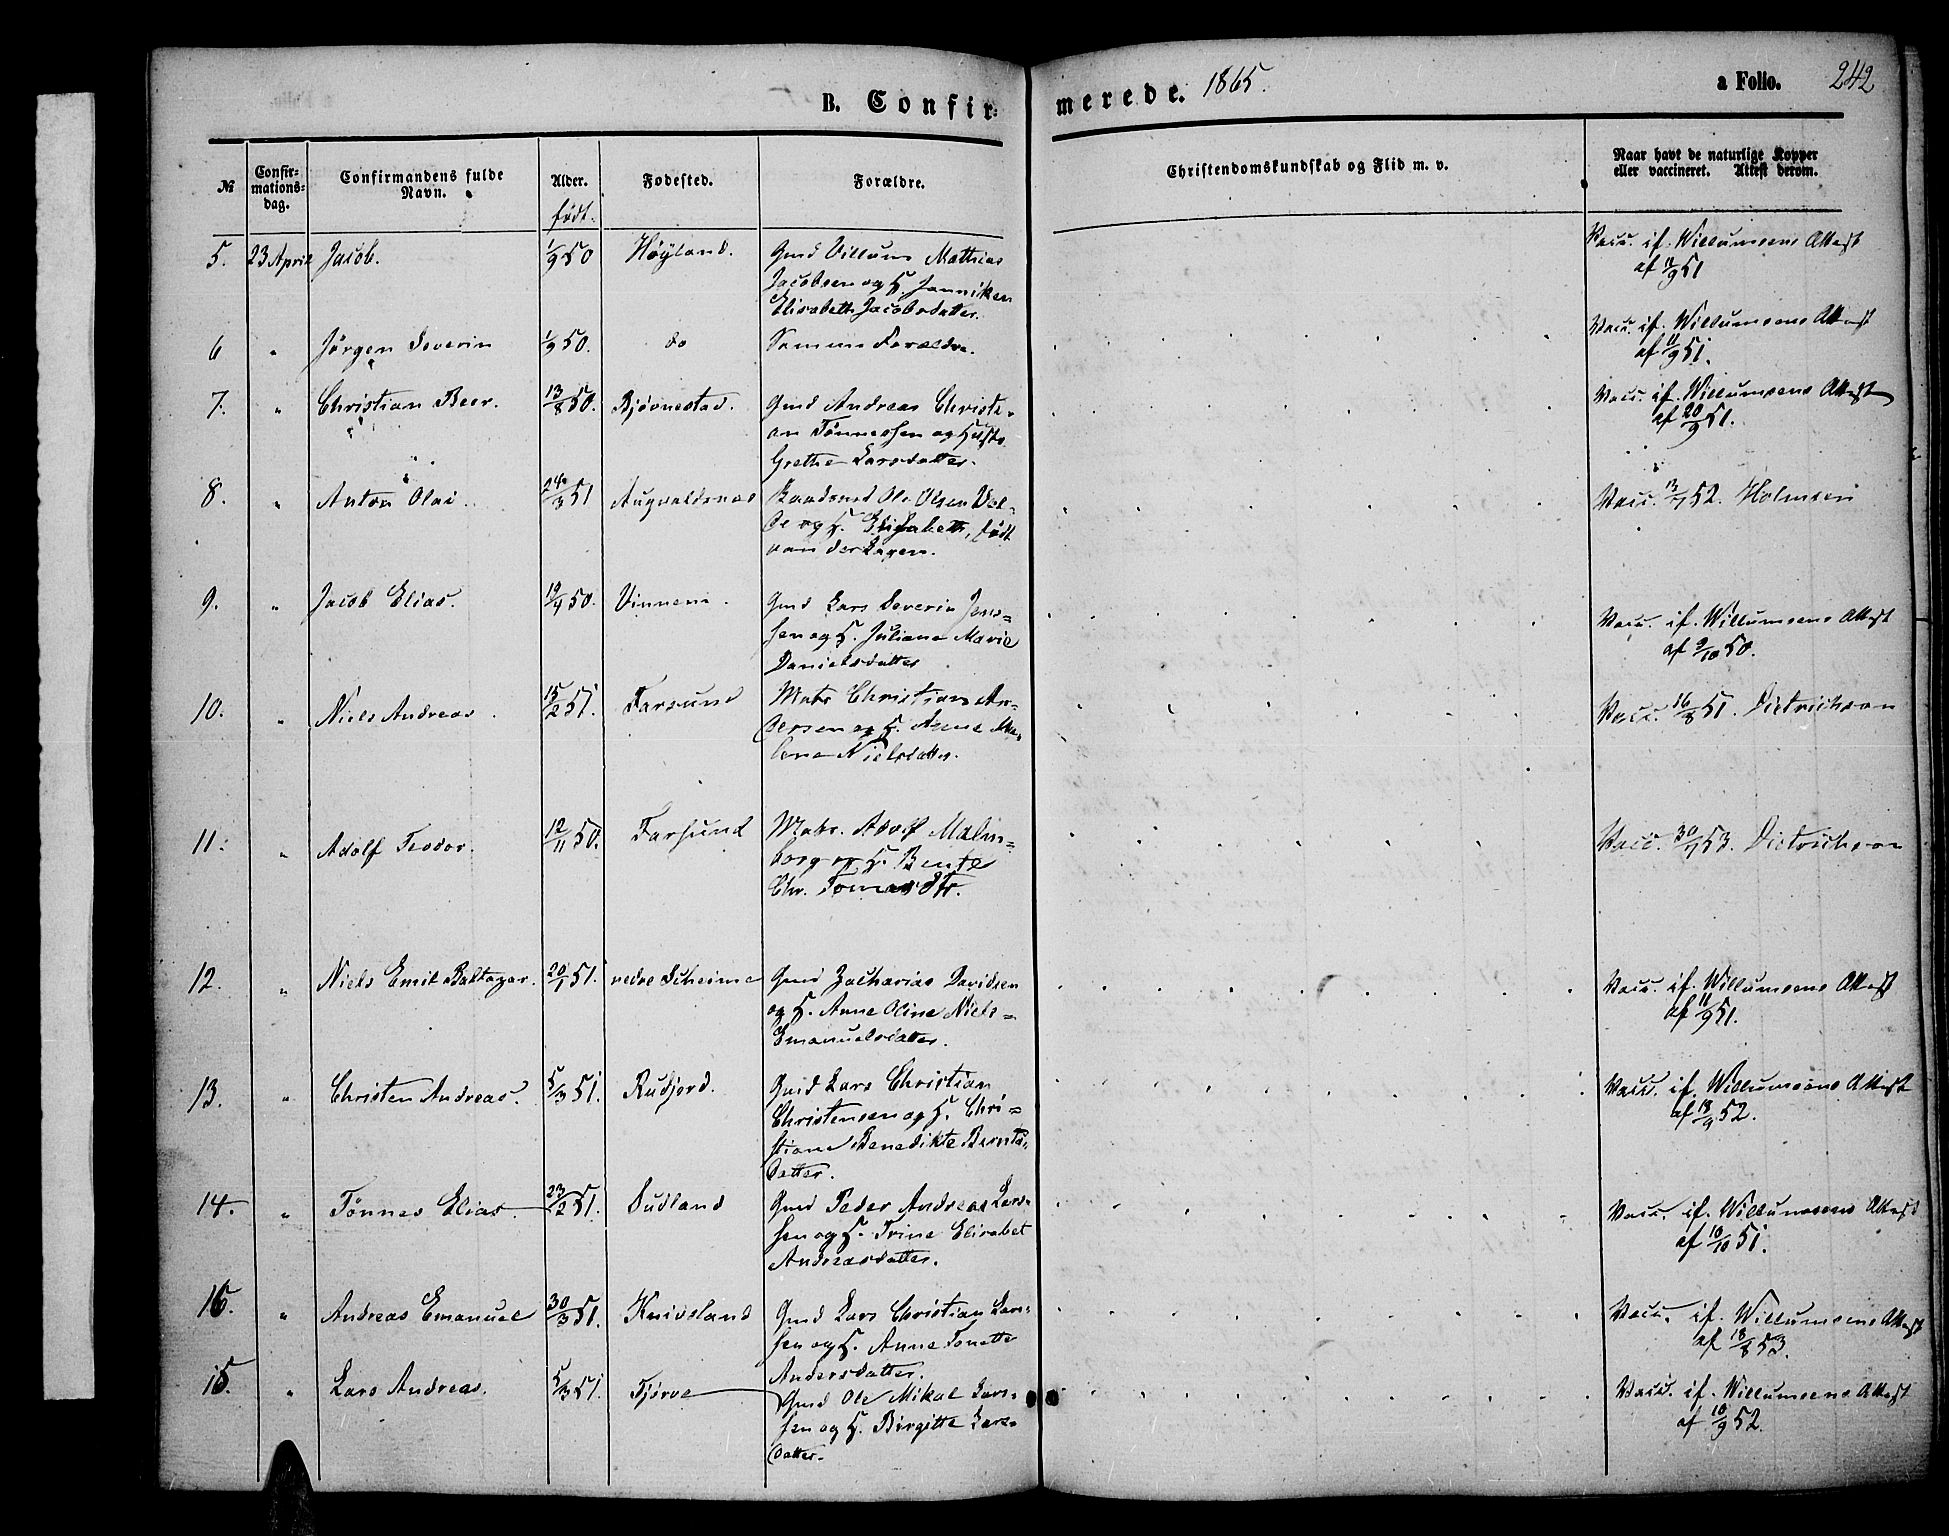 B. Confirmerede. 1865. a Folio. 242
№ Confirmationsdag. Confirmandens fulde Navn. Alder. født. Fødested. Forældre. Christendomskundskab og Flid m. v. Naar havt de naturlige Kopper eller vaccineret. Attest derom.
5. 23 April Jacob. 1/9 50 Høyland. Gmd Villum Mathias
Jacobsen og H. Janniken
Elisabeth Jacobsdatter.
Vacc. if. Willumsens Attest
af 11/9 51
6 " Jørgen Severin 1/9 50. do Samme Forældre.
Vacc. if. Willumsens Attest
af 11/9 51.
7. " Christian Beer. 13/8 50. Bjørnestad. Gmd Andreas Christi-
an Tønnessen og Hustr
Grethe Larsdatter.
Vacc. if. Willumsens Attest
af 20/9 51.
8. " Anton Olai. 24/3 51 Augvaldsnæs Ole Olsen Vel-
de og H. Elisabeth, født
van der Lagen.
Vacc. 13/7 52. Holmsen
9. " Jacob Elias. 19/4 50. Vinnem. Gmd Lars Severin Jens-
sen og H. Juliane Marie
Danielsdatter
Vacc. if. Willumsens Attest
af 9/10 50.
10. " Niels Andreas. 15/2 51. Farsund Matr Christian An-
dersen og H. Anne Ma-
lene Nielsdatter.
Vacc. 16/8 51. Dietrichson
11. " Adolf Teodor. 12/11 50. Farsund Matr. Adolf Malm-
borg og H. Bente
Chr. Tomasdtr.
Vacc. 30/7 53. Dietrichson
12. " Niels Emil Baltazar. 20/1 51. nedre Skeime Gmd Zacharias Davidsen
og H. Anne Oline Niels-
Emanuelsdatter.
Vacc. if. Willumsens Attest
af 11/9 51.
13. " Christen Andreas. 5/3 51. Rudjord. Gmd Lars Christian
Christensen og H. Chri-
stiane Benedikte Bernts-
datter.
Vacc. if. Willumsens Attest
af 18/9 52.
14. " Tønnes Elias. 23/2 51. Sudland Gmd Peder Andreas Lars-
sen og H. Trine Elisabet
Andreasdatter.
Vacc. if. Willumsens Attest
af 10/10 51.
16. " Andreas Emanuel 30/3 51. Knivsland Gmd Lars Christian Lars-
sen og H. Anne Tonette
Andersdatter.
Vacc. if. Willumsens Attest
af 18/8 53.
15. " Lars Andreas. 5/3 51. Tjørve Gmd Ole Mikal Lars-
sen og H. Birgitte Lars-
datter.
Vacc. if. Willumsens Attest
af 10/9 52.